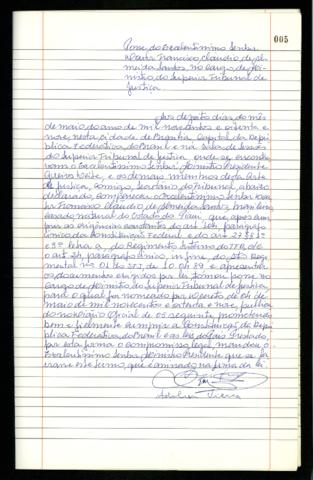 005
Posse do Excelentíssimo Senhor
Doutor Francisco Cláudio de Al-
meida Santos, no cargo de Mi-
nistro do Superior Tribunal de
Justiça.
Aos dezoito dias do mês
de maio do ano de mil novecentos e oitenta e
nove, nesta cidade de Brasília, Capital da Repú-
blica Federativa do Brasil e na sala de Sessões
do Superior Tribunal de Justiça, onde se encontra-
vam o Excelentíssimo Senhor Ministro Presidente
e os demais membros desta Corte
de Justiça, comigo, Secretário do Tribunal, abaixo
declarado, compareceu o Excelentíssimo Senhor Dou-
tor Francisco Cláudio de Almeida Santos, brasileiro,
casado, natural do Estado do Piauí, que após cum-
prir as exigências constantes do art. 104, parágrafo
único da Constituição Federal e do art.
do Regimento Interno do TFR,
o art. parágrafo único, in fine, do Ato Regi-
mental nº 01 do STJ, de 10 04 89 e apresentar
os documentos exigidos por lei tomou posse no
cargo de Ministro do Superior Tribunal de Justiça,
para o qual foi nomeado por decreto de
maio de mil novecentos e oitenta e nove, publica-
do no Diário Oficial de seguinte, prometendo
bem e fielmente cumprir a Constituição da Repú-
blica Federativa do Brasil e as leis do País. Prestado,
por esta forma, o compromisso legal, mandou o
Excelentíssimo Senhor Ministro Presidente que se la-
vrasse este termo, que é assinado na forma da lei.